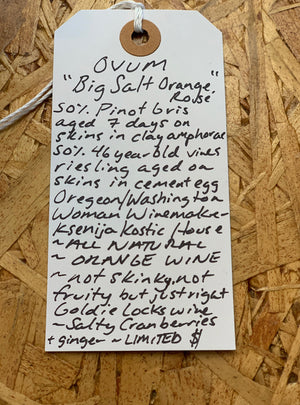 OVUM
"Big Salt Orange"
Rosé
50% Pinot Gris
aged 7 days on
skins in clay amphorae
50% 46 year old vines
riesling aged on
skins in cement egg
Oregeon/Washington
Woman Winemaker
Ksenija Kostic/House
~ALL NATURAL
~ ORANGE WINE
~ not skinky, not
fruity but just right
Goldie Locks wine
~Salty Cranberries
+ ginger ~ LIMITED $